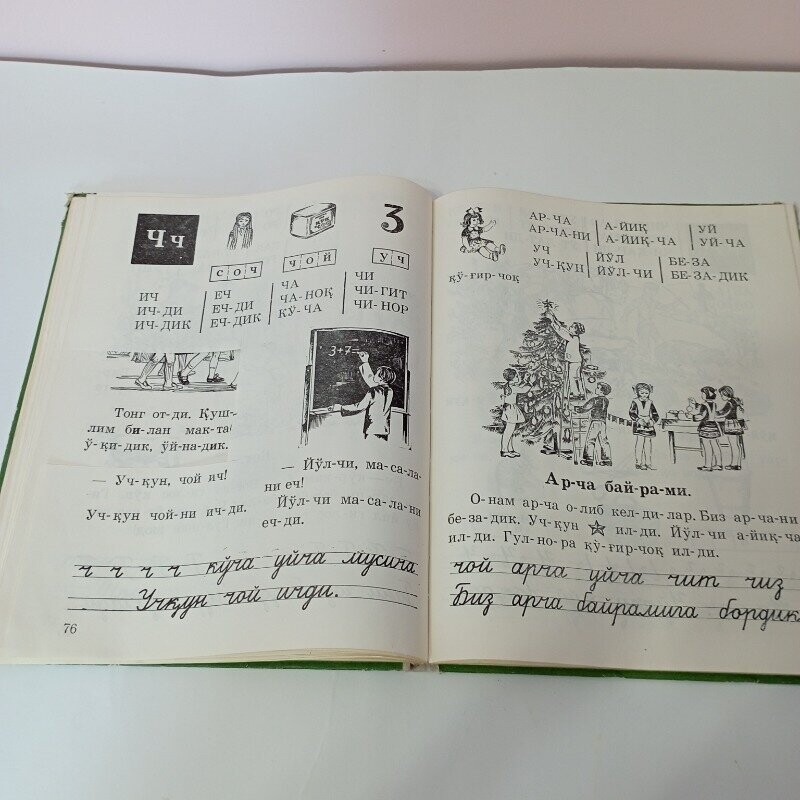 Чч
3
СОЧ ЧОЙ УЧ
ИЧ
ИЧ-ДИ
ИЧ-ДИК
ЕЧ
ЕЧ-ДИ
ЕЧ-ДИК
ЧА
ЧА-НОҚ
КЎ-ЧА
ЧИ
ЧИ-ГИТ
ЧИ-НОР
Тонг от-ди. Қуш-
лим би-лан мак-та
ў-қи-дик, ўй-на-дик.
— Уч-қун, чой ич!
Уч-қун чой-ни ич-ди.
3+7
— Йўл-чи, ма-са-ла-
ни еч!
Йўл-чи ма-са-ла-ни
еч-ди.
ч ч ч ч кўча уйча мусича
Учқун чой ичди.
76
қў-ғир-чоқ
АР-ЧА
АР-ЧА-НИ
А-ЙИҚ
А-ЙИҚ-ЧА
УЙ
УЙ-ЧА
УЧ
УЧ-ҚУН
ЙЎЛ
ЙЎЛ-ЧИ
БЕ-ЗА
БЕ-ЗА-ДИК
Ар-ча бай-ра-ми.
О-нам ар-ча о-либ кел-ди-лар. Биз ар-ча-ни
бе-за-дик. Уч-қун ил-ди. Йўл-чи а-йиқ-ча
ил-ди. Гул-но-ра қў-ғир-чоқ ил-ди.
чой арча уйча чит чиз
Биз арча байрамига бордик